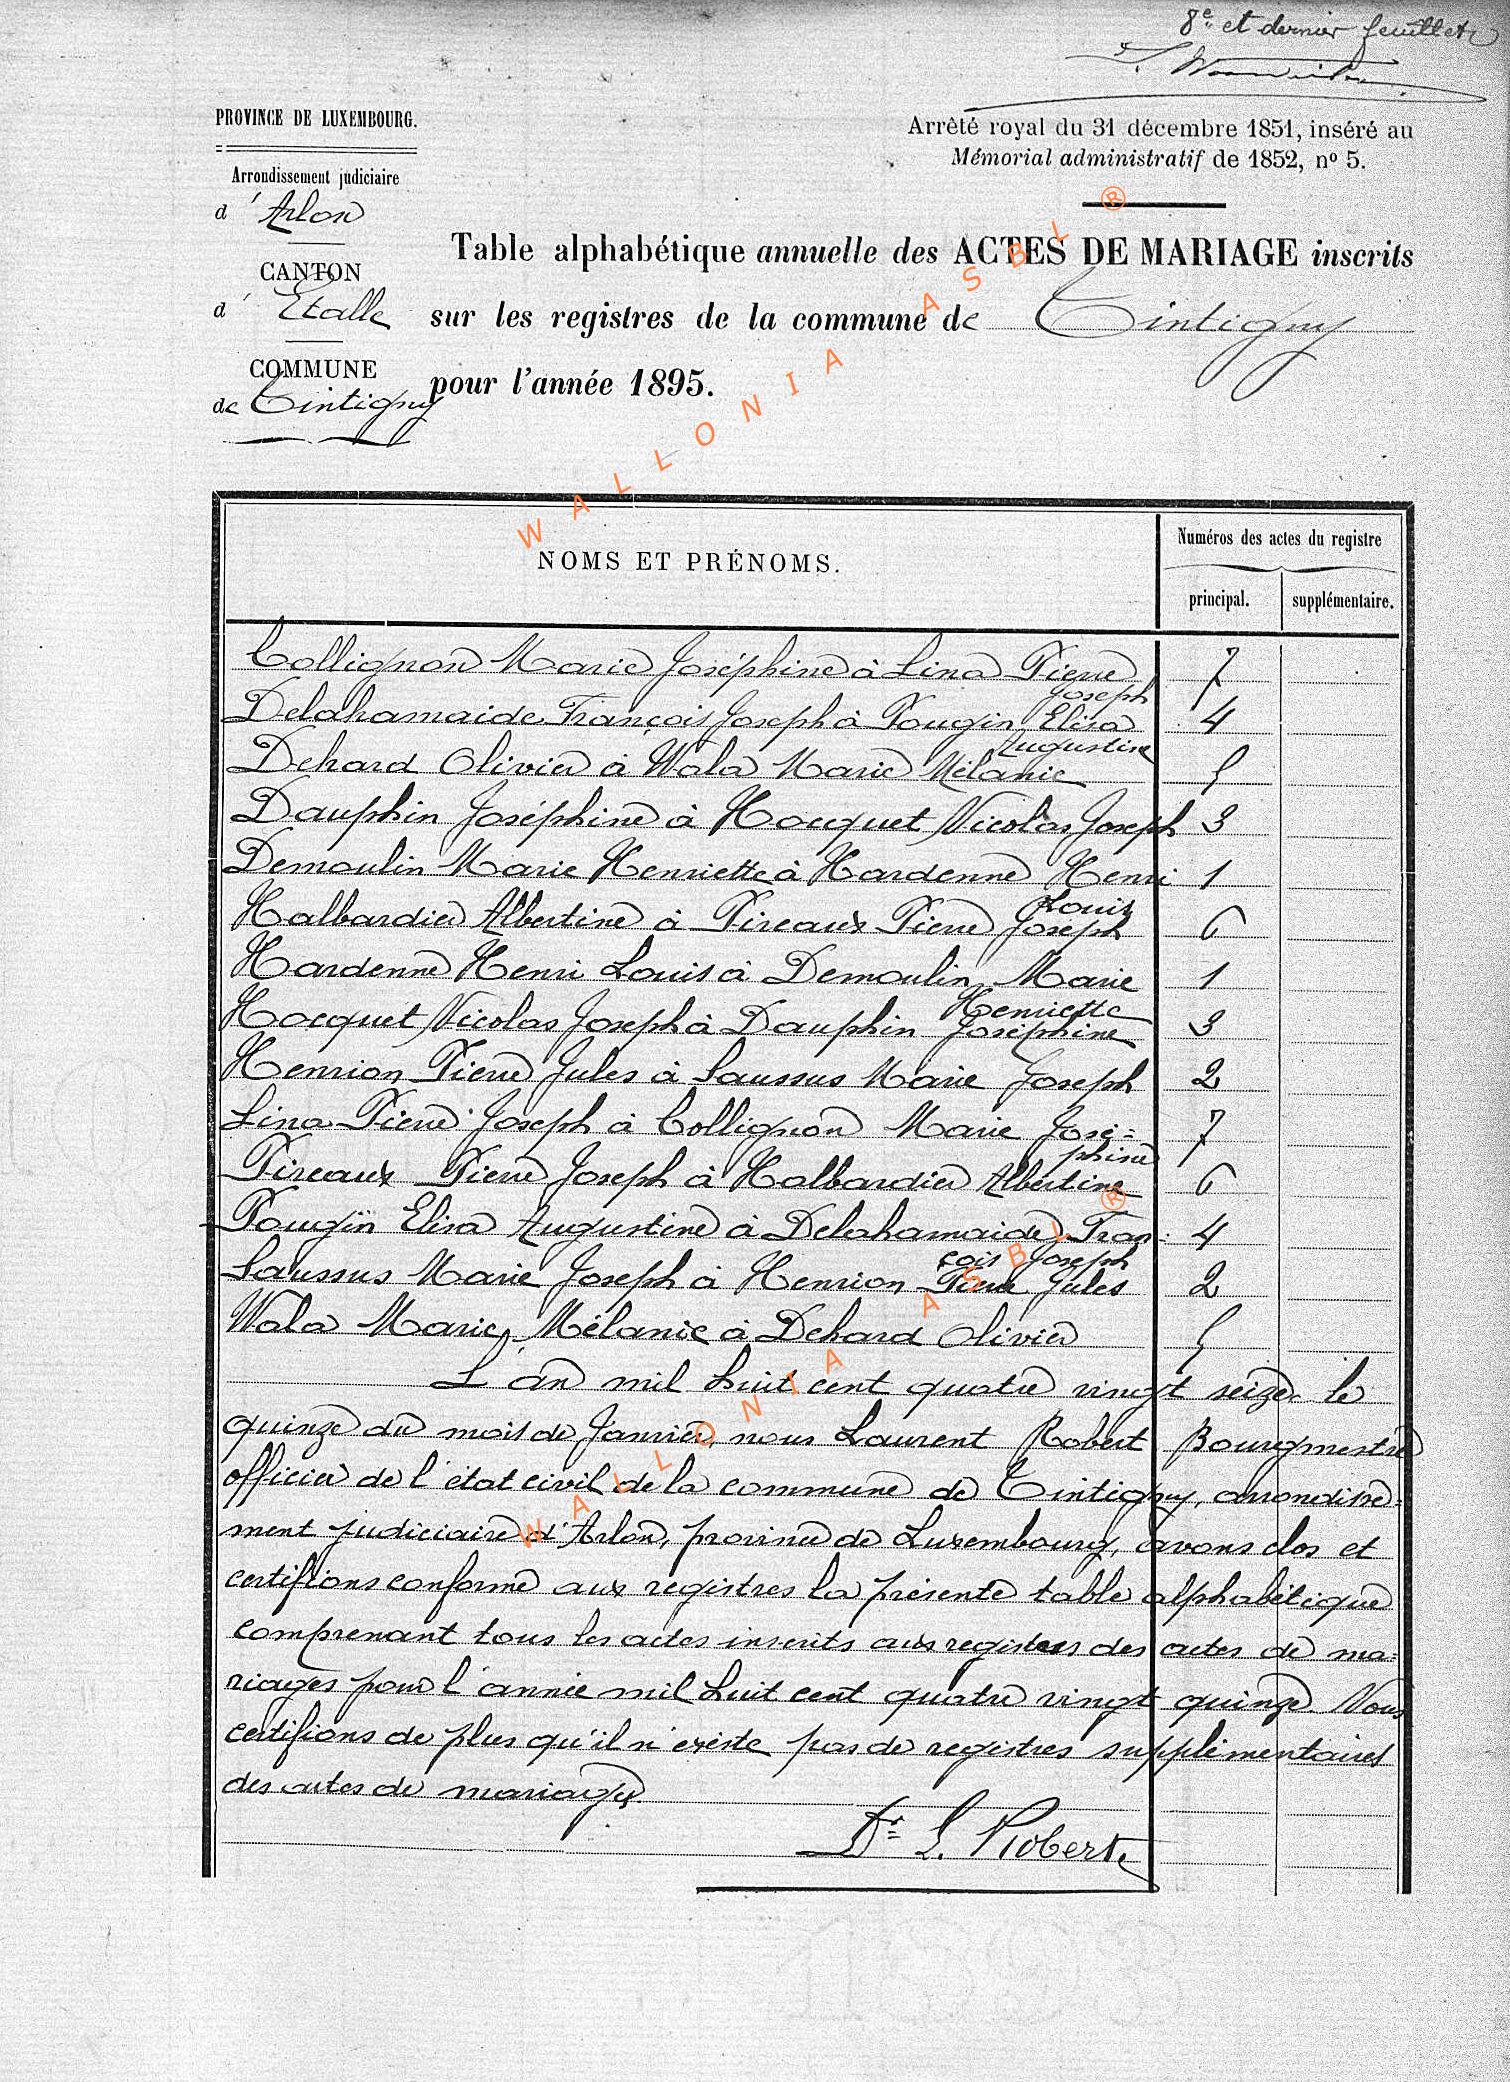 8e et dernier feuillet
PROVINCE DE LUXEMBOURG.
Arrondissement judiciaire
d'Arlon
CANTON
d'Etalle
COMMUNE
de Tintigny
Arrêté royal du 31 décembre 1851, inséré au
Mémorial administratif de 1852, nº 5.
Table alphabétique annuelle des ACTES DE MARIAGE inscrits
sur les registres de la commune de Tintigny
pour l'année 1895.
WALLONIA ASBL ®
NOMS ET PRÉNOMS.
Numéros des actes du registre
principal. supplémentaire.
Collignon Marie Joséphine à Lina Pierre Joseph 7
Delahamaide François Joseph à Pougin Elisa Augustine 4
Dehard Olivier à Wala Marie Mélanie 5
Dauphin Joséphine à Hocquet Nicolas Joseph 3
Demoulin Marie Henriette à Hardenne Henri Louis 1
Halbardier Albertine à Pireaux Pierre Joseph 6
Hardenne Henri Louis à Demoulin Marie Henriette 1
Hocquet Nicolas Joseph à Dauphin Joséphine 3
Henrion Pierre Jules à Saussus Marie Joseph 2
Lina Pierre Joseph à Collignon Marie José=phine 7
Pireaux Pierre Joseph à Halbardier Albertine 6
Pougin Elisa Augustine à Delahamaide Fran=çois Joseph 4
Saussus Marie Joseph à Henrion Pierre Jules 2
Wala Marie Mélanie à Dehard Olivier 5
L'an mil huit cent quatre vingt seize le
quinze du mois de Janvier, nous Laurent Robert Bourgmestre
officier de l'état civil de la commune de Tintigny, arrondisse=
ment judiciaire d'Arlon, province de Luxembourg, avons clos et
certifions conforme aux registres la présente table alphabétique
comprenant tous les actes inscrits aux registres des actes de ma=
riages pour l'année mil huit cent quatre vingt quinze. Nous
certifions de plus qu'il n'existe pas de registres supplémentaires
des actes de mariages.
Dr L. Robert
WALLONIA ASBL ®